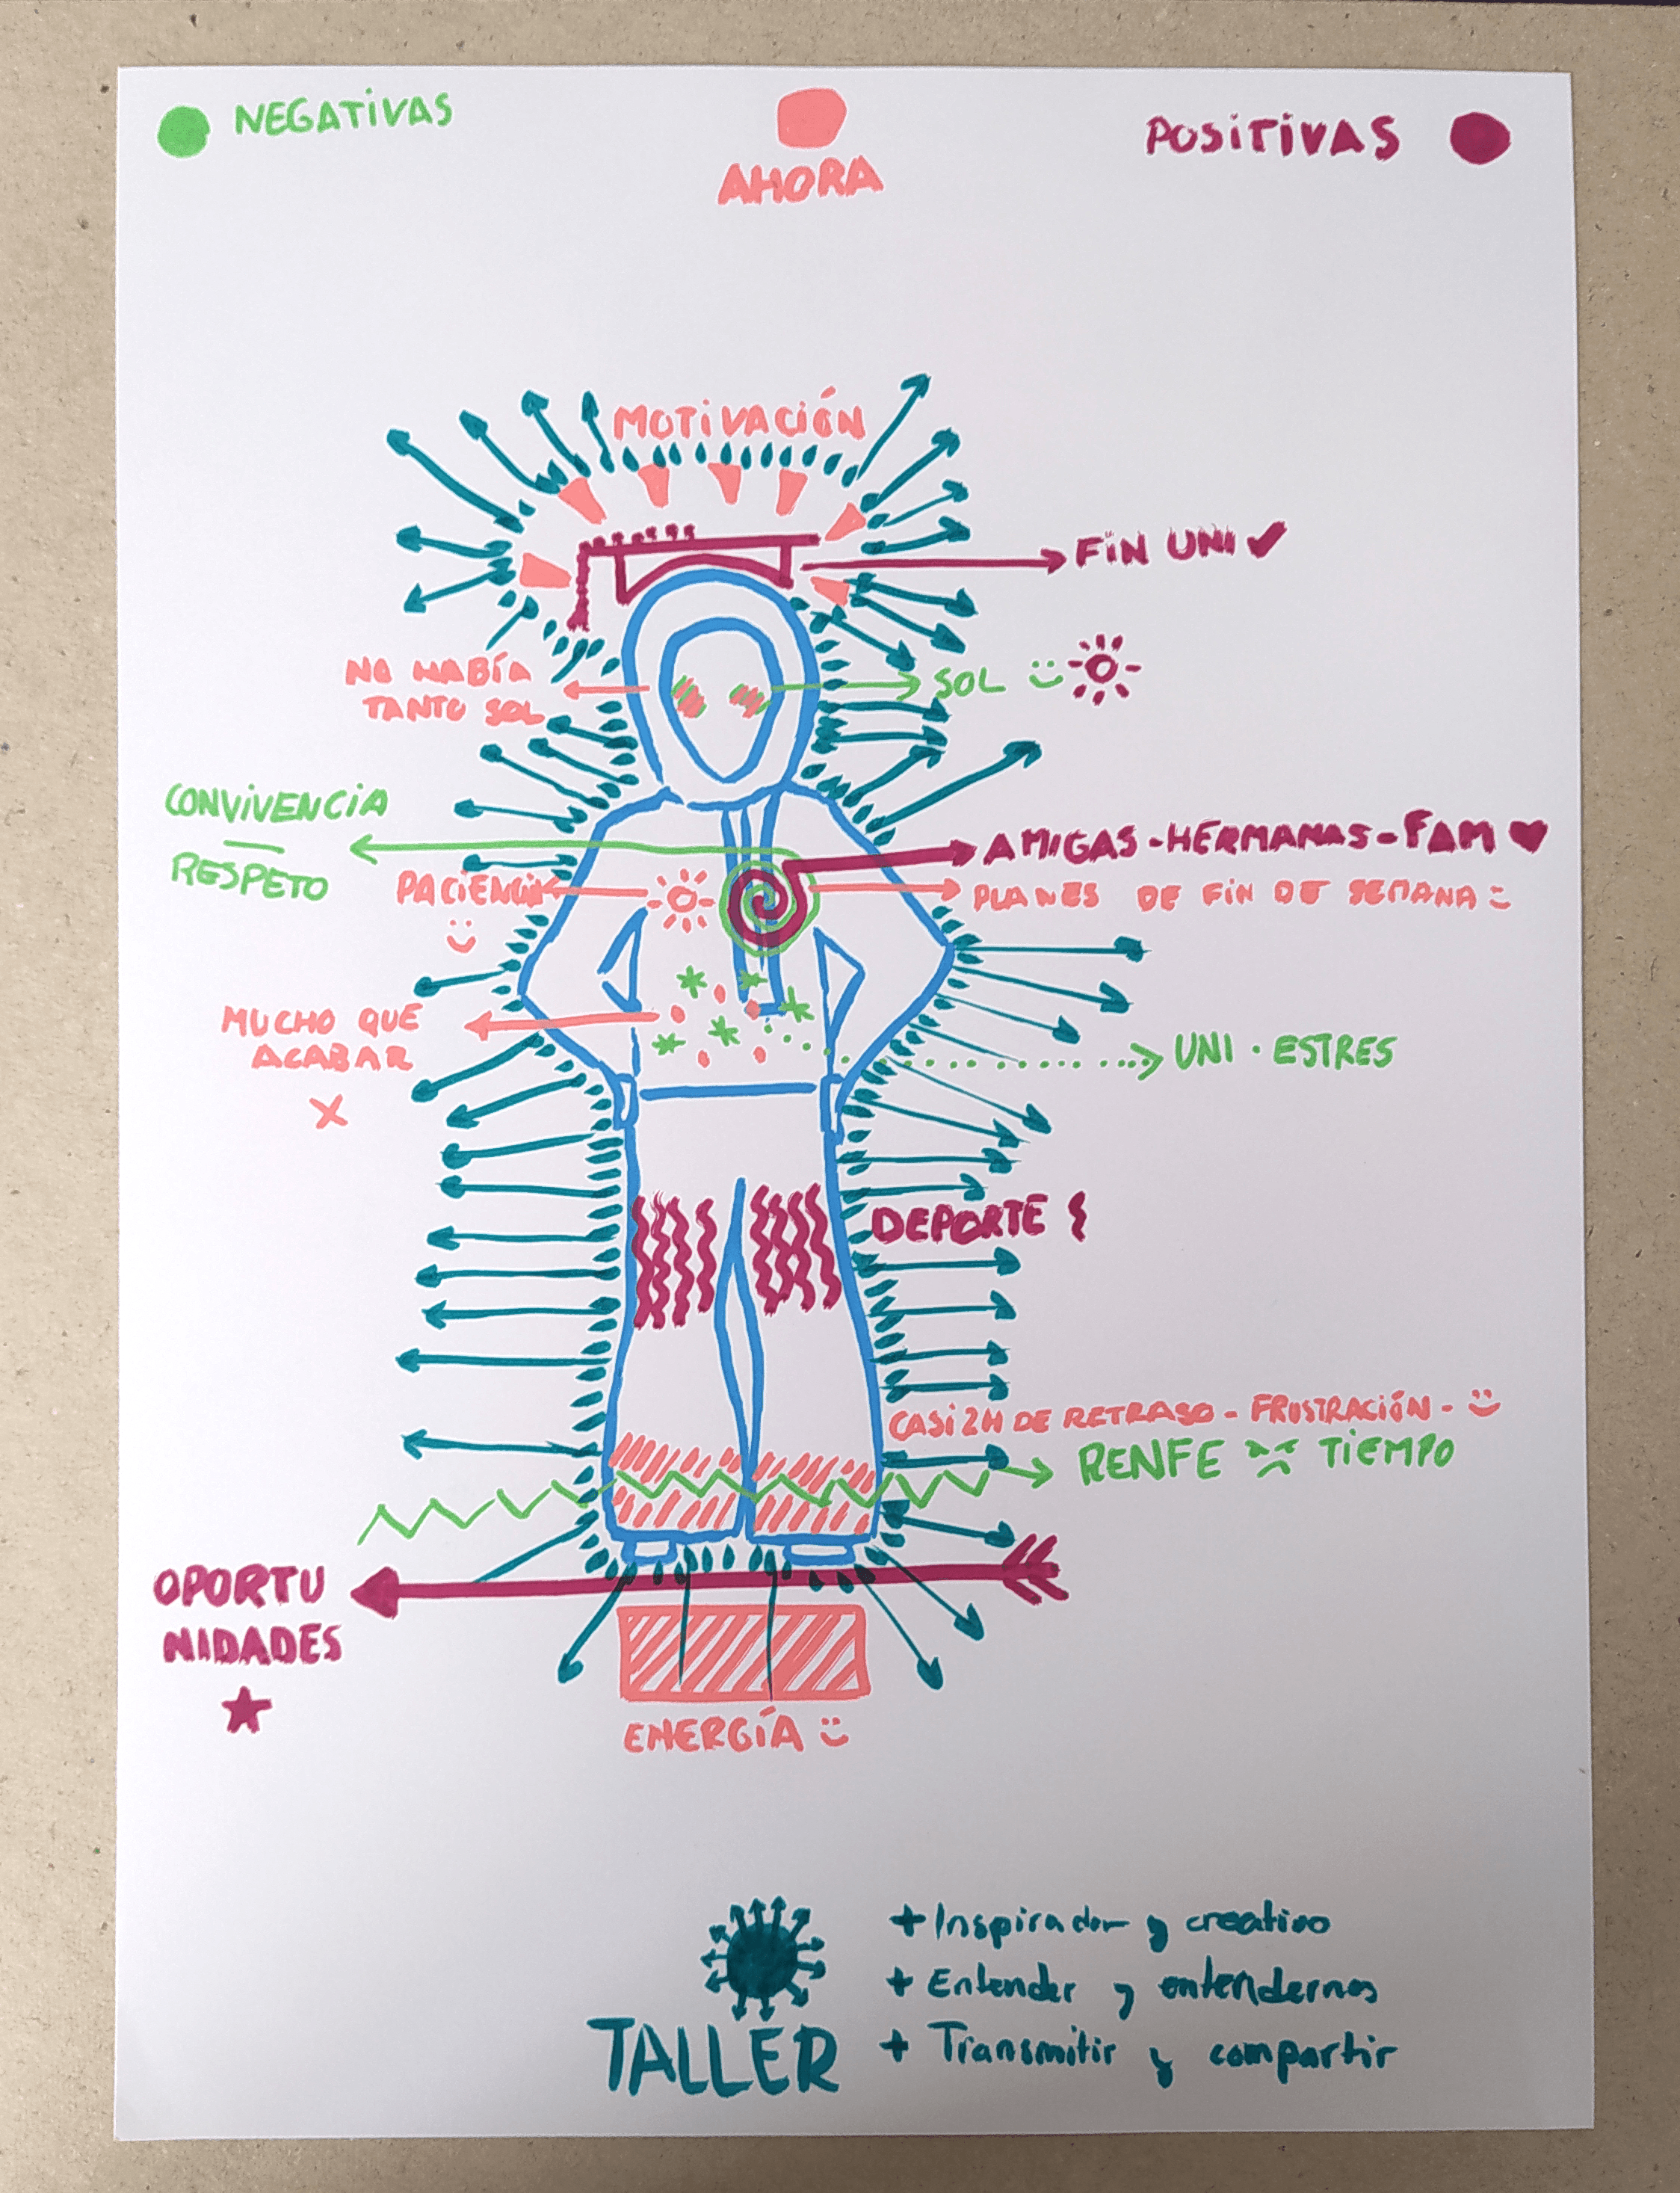 NEGATiVAS
AHORA
POSiTiVAS
MOTiVACiÓN
FiN UNi ✓
NO HABÍA
TANTO SOL
SOL
CONViVENCiA
RESPETO
PACiENCiA
AMIGAS-HERMANAS-FAM ♥
PLANES DE FiN DE SEMANA
MUCHO QUE
ACABAR
X
UNi · ESTRES
DEPORTE
CASi 2H DE RETRASO - FRUSTRACiÓN -
RENFE TiEMPO
OPORTU
NIDADES
ENERGÍA
TALLER
+ Inspirador y creativo
+ Entender y entendernos
+ Transmitir y compartir